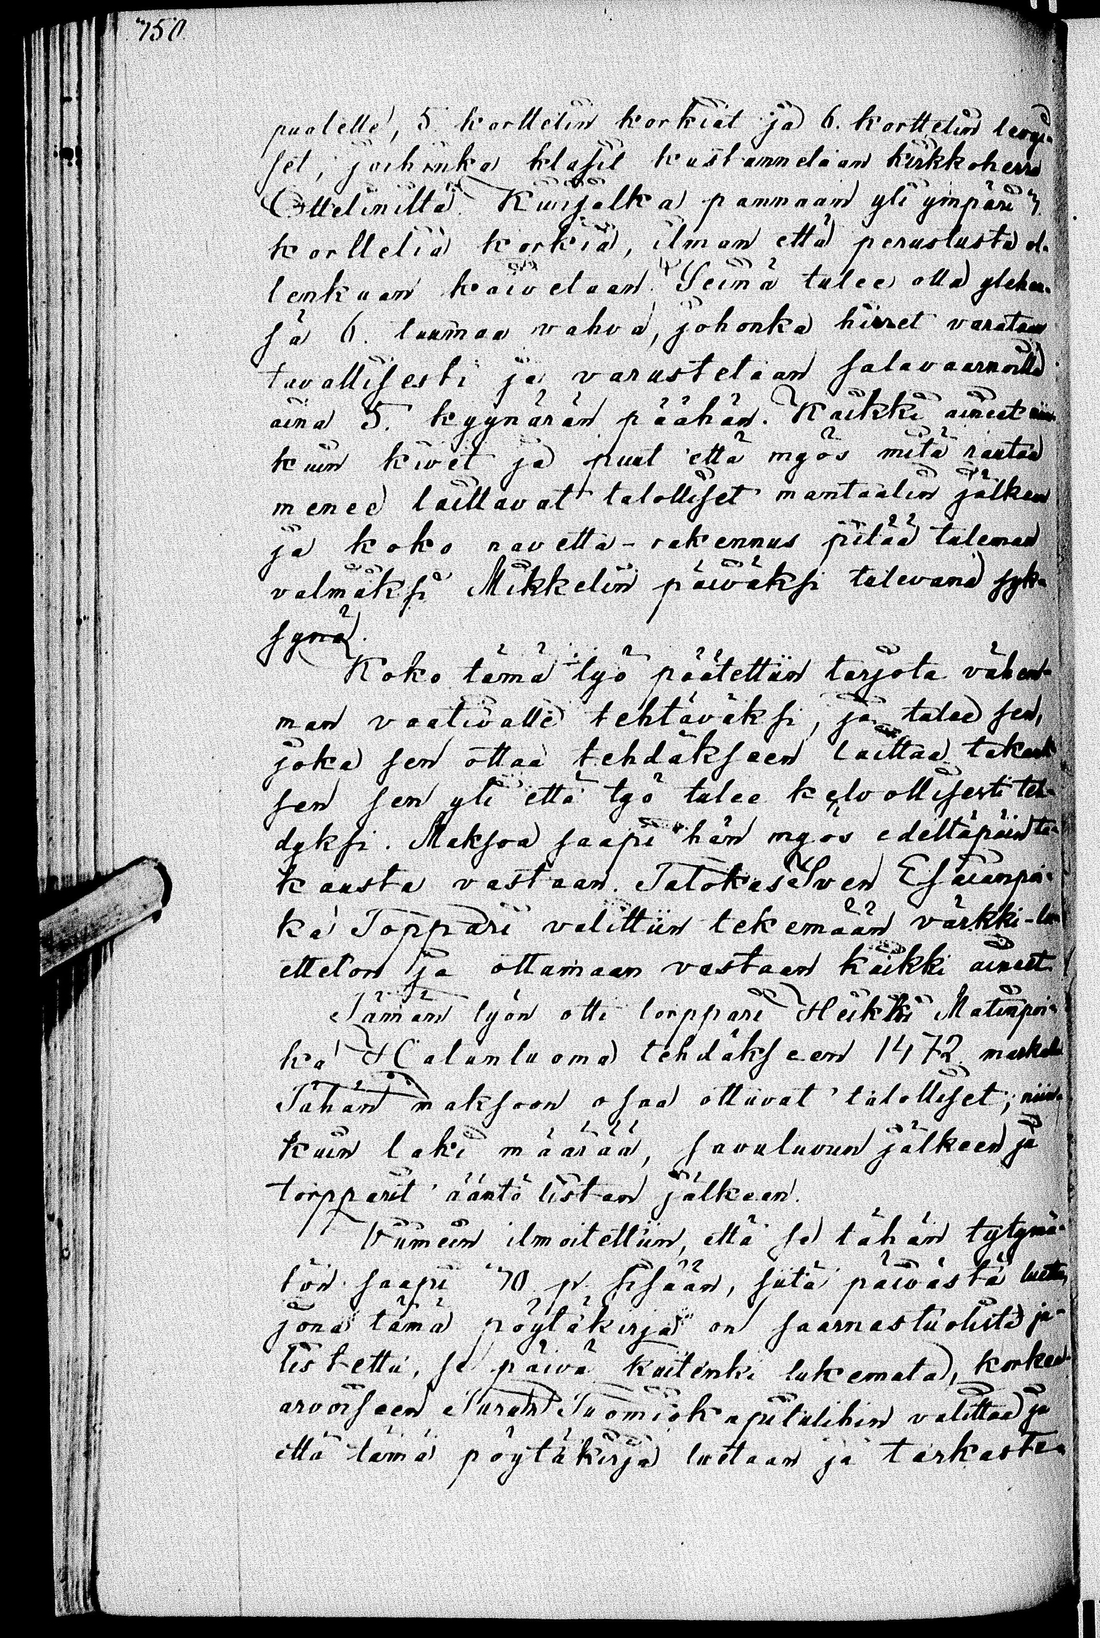 750.
puolelle, 5. korttelin korkiat ja 6. korttelin levyi-
set, joihinka klasit kustannetaan kirkkoherra
Ottelinilta. Kivijalka pannaan yli ympäri 3
korttelia korkia, ilman että perustusta ol-
lenkaan kaivetaan. Seinä tulee olla
sä 6. tuumaa vahva, johonka hirret varataan
tavallisesti ja varustetaan salavaarnoilla
aina 5. kyynärän päähän. Kaikki aineet niin-
kuin kivet ja puut että myös mitä rautaa
menee laittavat talolliset mantaalin jälkeen
ja koko navetta-rakennus pitää tuleman
valmiiksi Mikkelin päiväksi tulevana syk-
synä.
Koko tämä työ päätettiin tarjota vähem-
män vaativalle tehtäväksi, ja tulee sen,
joka sen ottaa tehdäkseen laittaa takauk-
sen sen yli että työ tulee kelvollisesti teh-
dyksi. Maksoa saapi hän myös edeltäpäin ta-
kausta vastaan. Talokas Sven Esaianpoi-
ka Toppari valittiin tekemään värkki-lu-
ettelon ja ottamaan vastaan kaikki aineet.
Tämän työn otti torppari Heikki Matinpoi-
ka Halunluoma tehdäkseen 1472 markalla
Tähän maksoon osaa ottavat talolliset, niin-
kuin laki määrää, savuluvun jälkeen ja
torpparit ääntölistan jälkeen.
Viimein ilmoitettiin, että se tähän tytymä-
tön saapi 30 p. sisään, siitä päivästä luettu,
jona tämä pöytäkirja on saarnastuolista ju-
listettu, se päivä kuitenki lukemata, korkea-
arvoiseen Turun Tuomiokapituliihin valittaa ja
että tämä pöytäkirja luetaan ja tarkaste-